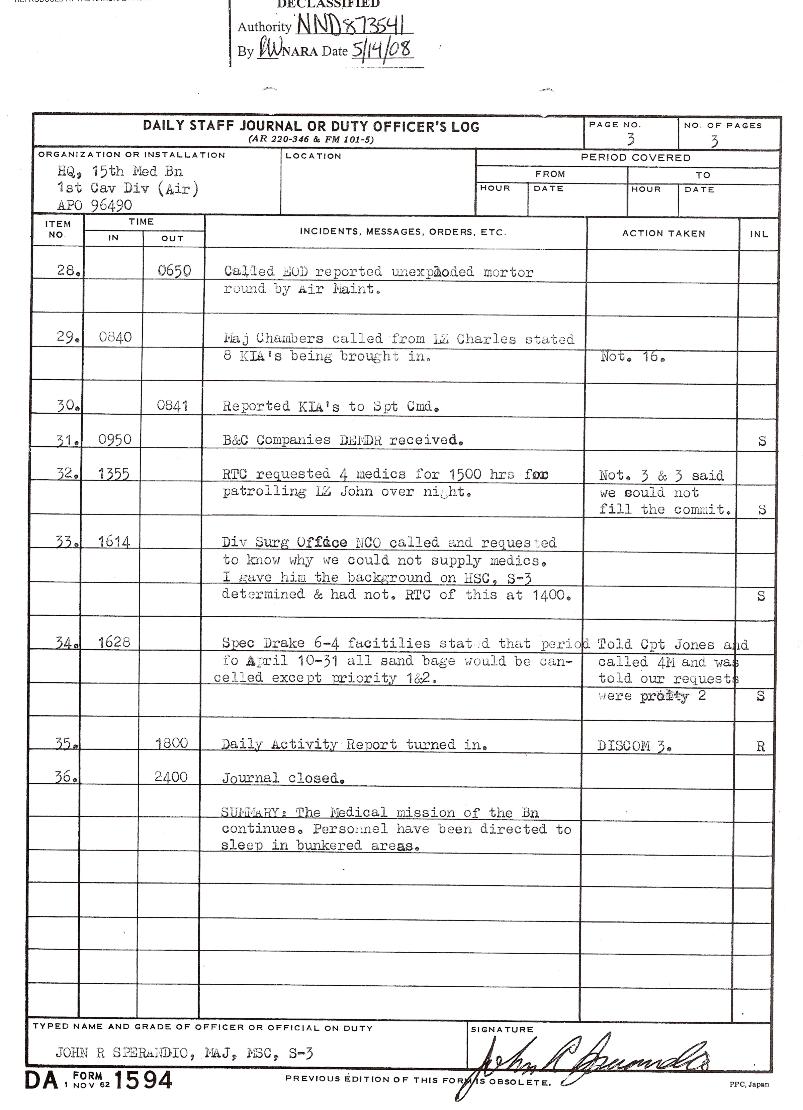 DECLASSIFIED
Authority NND873541
By NARA Date 5/14/08
DAILY STAFF JOURNAL OR DUTY OFFICER'S LOG
(AR 220-346 & FM 101-5)
PAGE NO.
3
NO. OF PAGES
3
ORGANIZATION OR INSTALLATION
HQ, 15th Med Bn
1st Cav Div (Air)
APO 96490
LOCATION
PERIOD COVERED
FROM
TO
HOUR DATE HOUR DATE
ITEM NO. TIME IN OUT INCIDENTS, MESSAGES, ORDERS, ETC. ACTION TAKEN INL
28. 0650 Called EOD reported unexploded mortor
round by Air Maint.
29. 0840 Maj Chambers called from LZ Charles stated
8 KIA's being brought in. Not. 16.
30. 0841 Reported KIA's to Spt Cmd.
31. 0950 B&C Companies DEMDR received. S
32. 1355 RTC requested 4 medics for 1500 hrs for Not. 3 & 3 said
patrolling LZ John over night. we could not
fill the commit. S
33. 1614 Div Surg Office NCO called and requested
to know why we could not supply medics.
I gave him the background on HSC, S-3
determined & had not. RTC of this at 1400. S
34. 1628 Spec Drake 6-4 facitilies stat d that period Told Cpt Jones and
fo April 10-31 all sand bage would be can- called 4M and was
celled except priority 1&2. told our requests
were proity 2 S
35. 1800 Daily Activity Report turned in. DISCOM 3. R
36. 2400 Journal closed.
SUMMARY: The Medical mission of the Bn
continues. Personnel have been directed to
sleep in bunkered areas.
TYPED NAME AND GRADE OF OFFICER OR OFFICIAL ON DUTY
JOHN R SPERANDIO, MAJ, MSC, S-3
SIGNATURE
DA FORM 1 NOV 62 1594
PREVIOUS EDITION OF THIS FORM IS OBSOLETE.
PPC, Japan